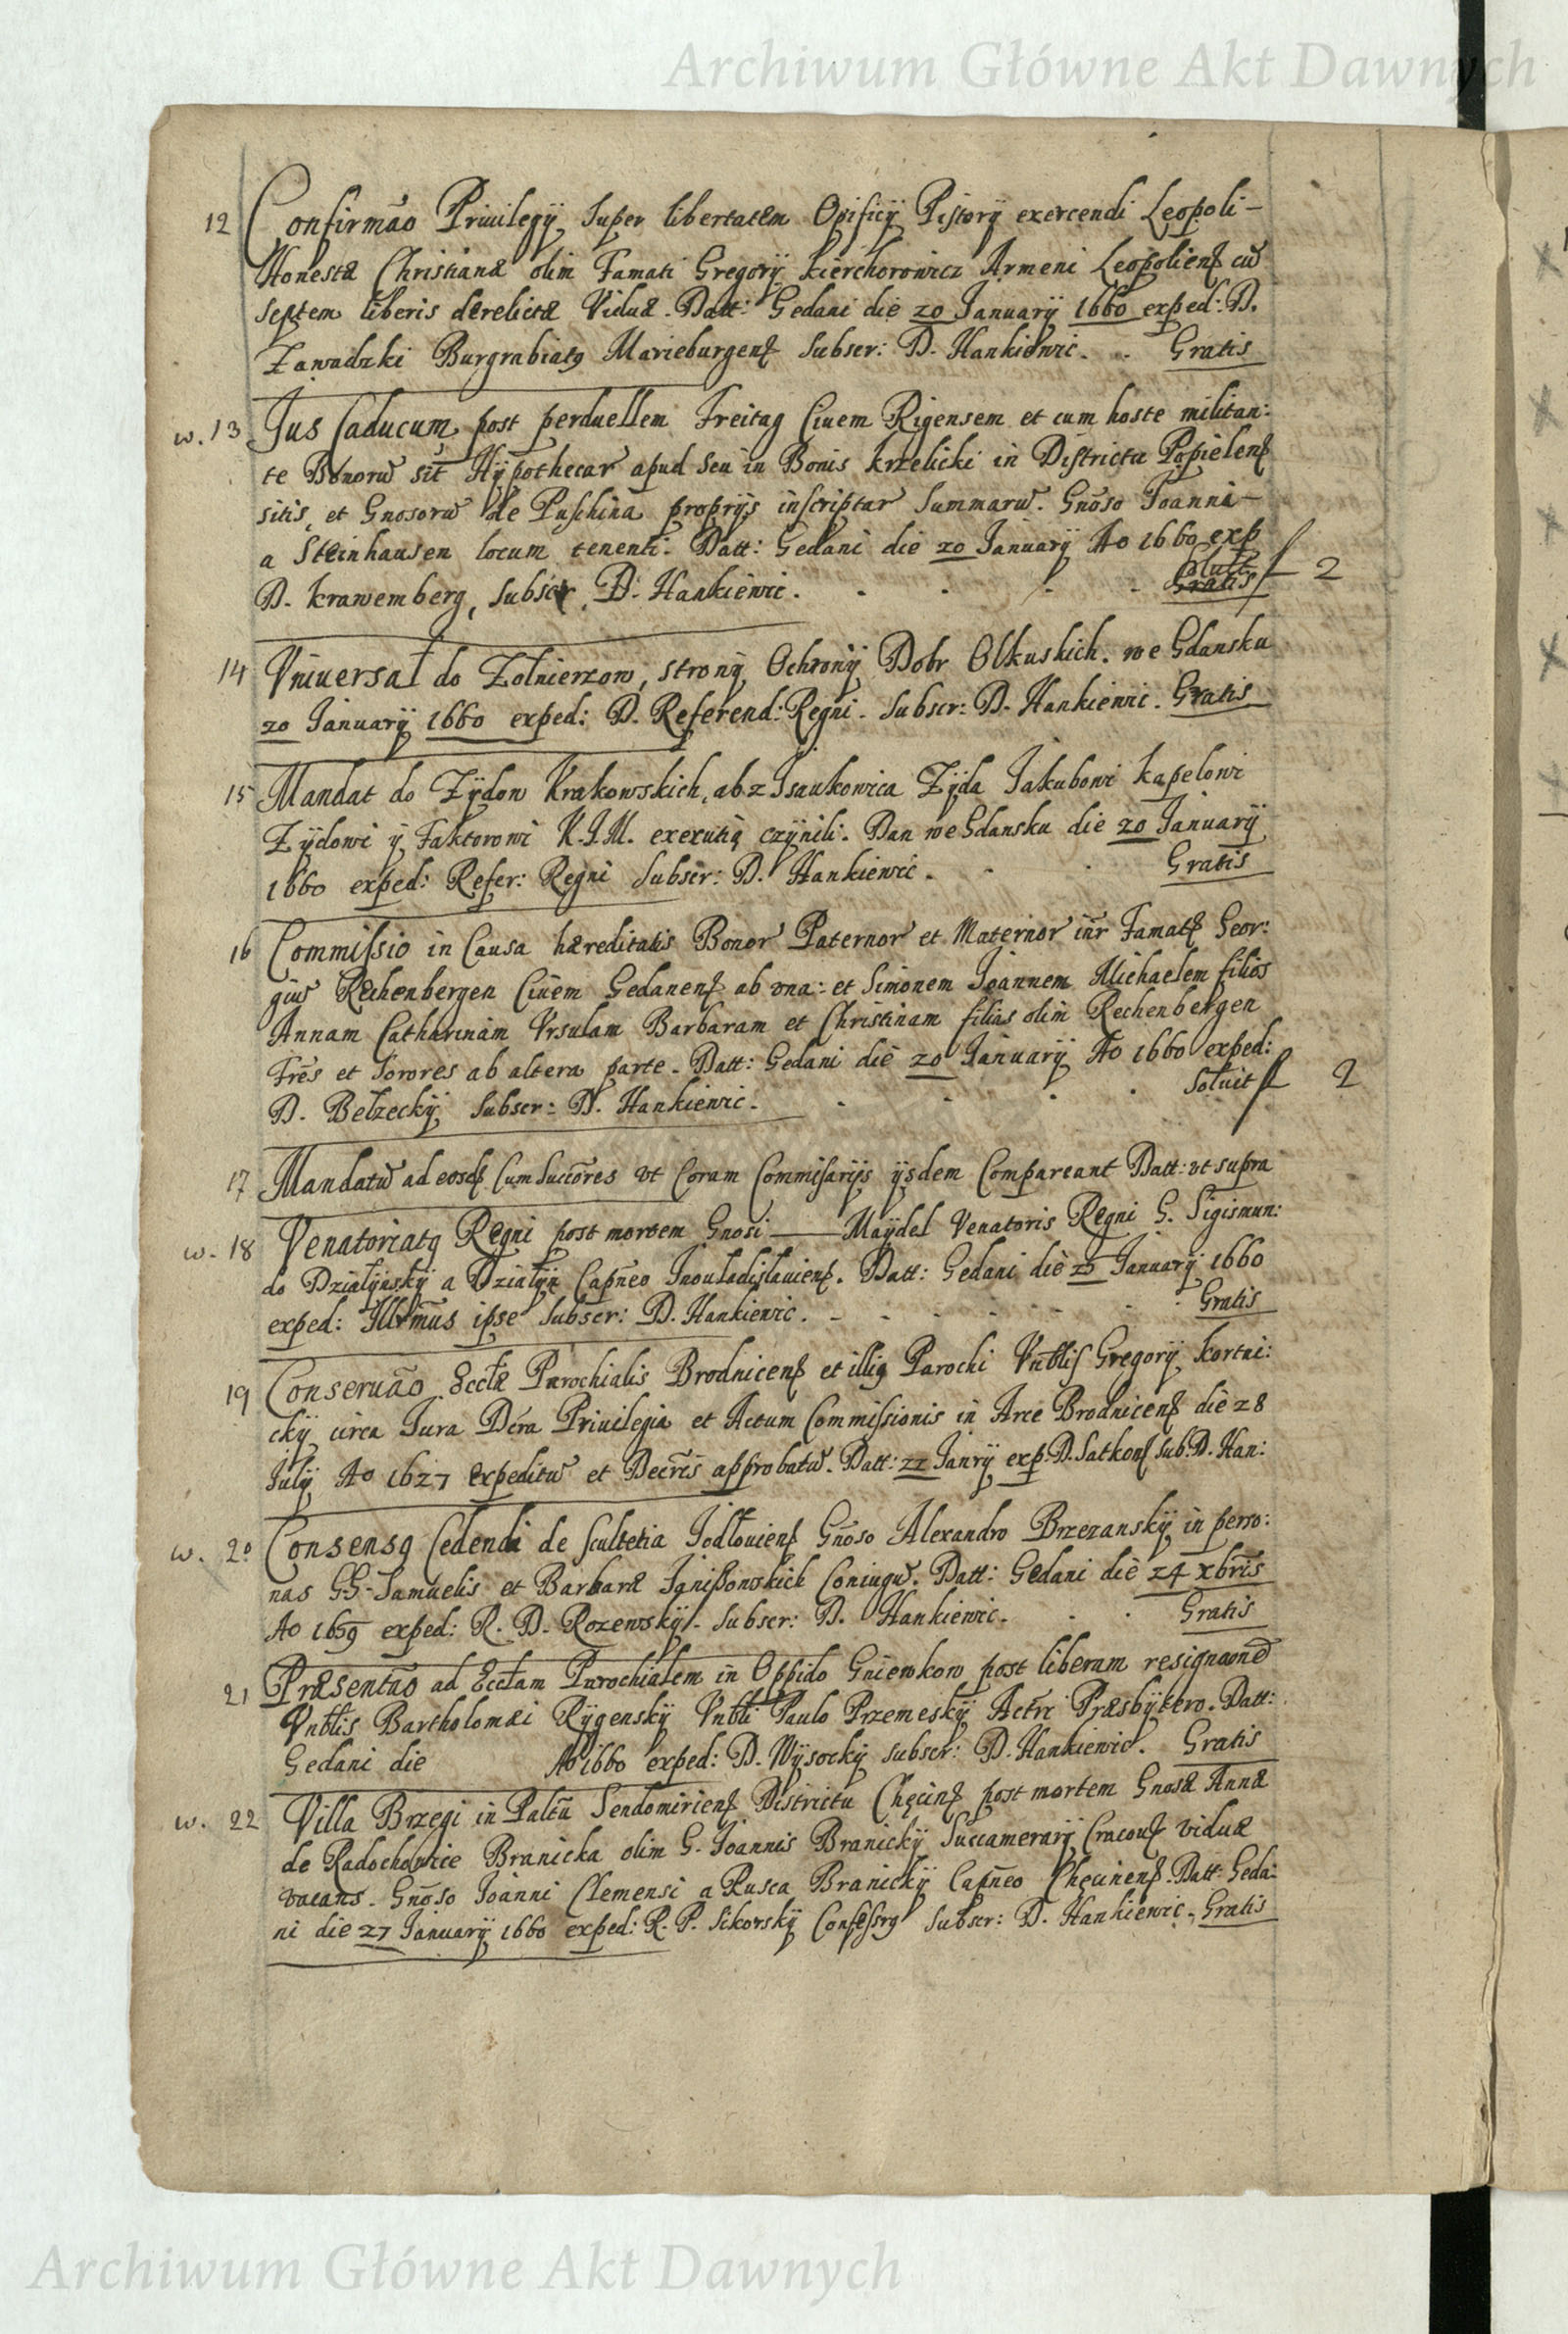 Archiwum Główne Akt Dawnych
12 Confirmão Priuilegÿ super libertatem Opificÿ Pistorÿ exercendi Leopoli-
Honestæ Christianæ olim Famati Gregorÿ Kierchorowicz Armeni Leopoliens cũ
septem liberis derelictæ Viduæ. Datt: Gedani die 20 Januarÿ 1660 exped: D.
Zawadzki Burgrabiatq Marieburgens Subscr: D. Hankiewic. . Gratis
w. 13 Jus Caducum post perduellem Freitag Ciuem Rigensem et cum hoste militan:
te Bonorũ sit Hÿpothecar apud seu in Bonis Krzelicki in Districtu Popielens
sitis, et Gnosorũ de Puschina proprÿs inscriptar Summarũ. Gnõso Joanni-
a Steinhausen locum tenenti. Datt: Gedani die 20 Januarÿ Ao 1660 exp
D. Krawemberg, Subscr. D. Hankiewic. . . . . Gratis Soluit f 2
14 Vniuersał do Zołnierzow, strony Ochrony Dobr Olkuskich. we Gdansku
20 Januarÿ 1660 exped: D. Referend: Regni. Subscr: D. Hankiewic. Gratis
15 Mandat do Zÿdow Krakowskich, ab z Isaakowica Zÿda Jakubowi Kapelowi
Zÿdowi ÿ Faktorowi K.J.M. exexutią czÿnili. Dan we Gdansku die 20 Januarÿ
1660 exped: Refer: Regni Subscr: D. Hankiewic. . . Gratis
16 Commissio in Causa hæreditatis Bonor Paternor et Maternor inr Famats Geor:
giũ Rechenbergen Ciuem Gedanens ab vna: et Simonem Joannem Michaelem filios
Annam Catharinam Vrsulam Barbaram et Christinam filias olim Rechenbergen
Frẽs et Sorores ab altera parte. Datt: Gedani die 20 Januarÿ Ao 1660 exped:
D. Bełzeckÿ Subscr: D. Hankiewic. . . . . Soluit f 2
17 Mandatũ ad eosd Cum Succõres vt Coram Commisarÿs ÿsdem Compareant Datt: vt supra
w. 18 Venatoriatq Regni post mortem Gnosi —— Maÿdel Venatoris Regni G. Sigismun:
do Działÿnskÿ a Działÿn Capñeo Inouładislauiens. Datt: Gedani die 25 Januarÿ 1660
exped: Illrm̃us ipse Subscr: D. Hankiewic. . . . . Gratis
19 Conseruão Eccłæ Parochialis Brodnicens et illiq Parochi Vnblis Gregorÿ Kortni:
ckÿ circa Jura Dcra Priuilegia et Actum Commissionis in Arce Brodnicens die 28
Julÿ Ao 1627 expeditũ et Decrẽs approbatũ. Datt: 22 Janrÿ exp: D. Satkons sub. D. Han:
w. 20 Consensq Cedendi de Scultetia Jodłouiens Gñoso Alexandro Brzezanskÿ in perso:
nas G.G. Samuelis et Barbaræ Ignißowskich Coniugũ. Datt: Gedani die 24 xbris
Ao 1659 exped: R. D. Rozewskÿ. Subscr: D. Hankiewic. . . Gratis
21 Præsentão ad Eccłam Parochialem in Oppido Gniewkow post liberam resignaone
Vnblis Bartholomæi Rÿgenskÿ Vnbli Paulo Przemeskÿ Actrr Præsbÿtero. Datt:
Gedani die Ao 1660 exped: D. Wÿsockÿ subscr: D. Hankiewic. Gratis
w. 22 Villa Brzegi in Paltũ Sendomiriens Districtu Chęcins post mortem Gnosæ Annæ
de Radochonice Branicka olim G. Joannis Branickÿ Succamerarÿ Cracous viduæ
vacans. Gñoso Joanni Clemensi a Rusca Branickÿ Capñeo Chęcinens. Datt: Geda:
ni die 27 Januarÿ 1660 exped: R. P. Sikorskÿ Confessrq Subscr: D. Hankiewic. Gratis
Archiwum Główne Akt Dawnych